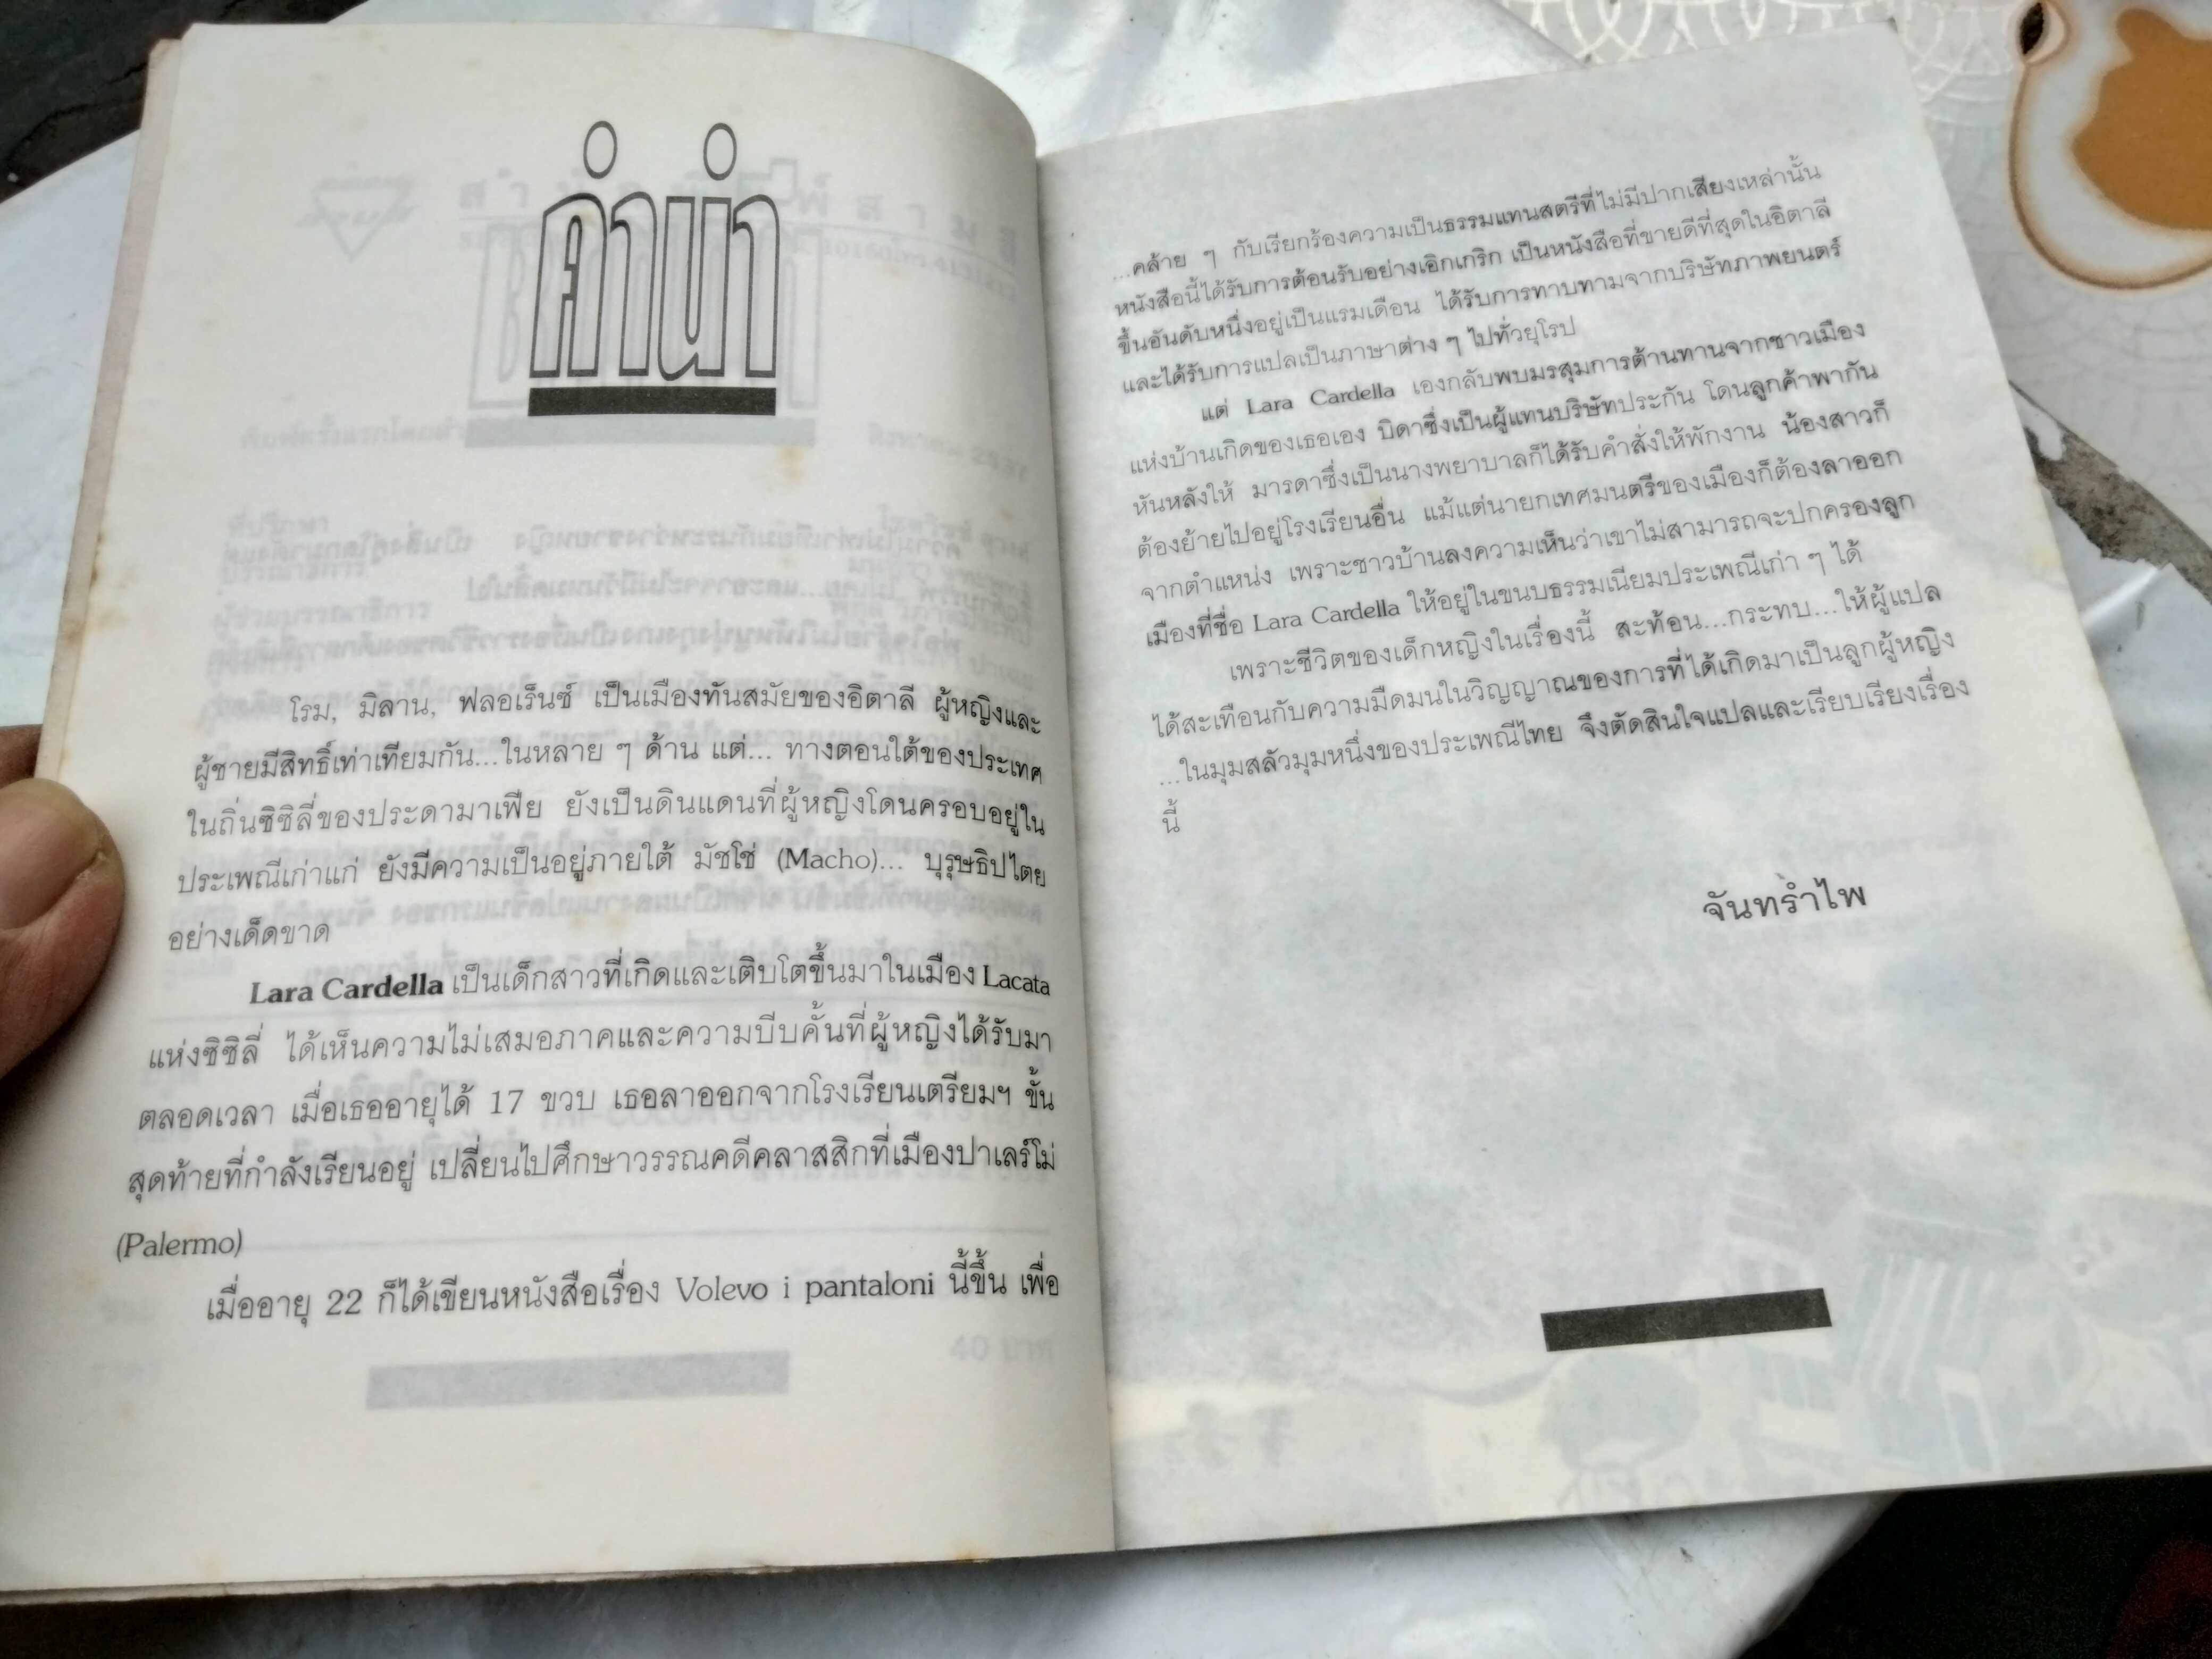 คำนำ
โรม, มิลาน, ฟลอเร็นซ์ เป็นเมืองทันสมัยของอิตาลี ผู้หญิงและ
ผู้ชายมีสิทธิ์เท่าเทียมกัน...ในหลาย ๆ ด้าน แต่... ทางตอนใต้ของประเทศ
ในถิ่นซิซิลี่ของประดามาเฟีย ยังเป็นดินแดนที่ผู้หญิงโดนครอบอยู่ใน
ประเพณีเก่าแก่ ยังมีความเป็นอยู่ภายใต้ มัชโช่ (Macho)... บุรุษธิปไตย
อย่างเด็ดขาด
Lara Cardella เป็นเด็กสาวที่เกิดและเติบโตขึ้นมาในเมือง Lacata
แห่งซิซิลี่ ได้เห็นความไม่เสมอภาคและความบีบคั้นที่ผู้หญิงได้รับมา
ตลอดเวลา เมื่อเธออายุได้ 17 ขวบ เธอลาออกจากโรงเรียนเตรียมฯ ชั้น
สุดท้ายที่กำลังเรียนอยู่ เปลี่ยนไปศึกษาวรรณคดีคลาสสิกที่เมืองปาเลร์โม่
(Palermo)
เมื่ออายุ 22 ก็ได้เขียนหนังสือเรื่อง Volevo i pantaloni นี้ขึ้น เพื่อ
...คล้าย ๆ กับเรียกร้องความเป็นธรรมแทนสตรีที่ไม่มีปากเสียงเหล่านั้น
หนังสือนี้ได้รับการต้อนรับอย่างเอิกเกริก เป็นหนังสือที่ขายดีที่สุดในอิตาลี
ขึ้นอันดับหนึ่งอยู่เป็นแรมเดือน ได้รับการทาบทามจากบริษัทภาพยนตร์
และได้รับการแปลเป็นภาษาต่าง ๆ ไปทั่วยุโรป
แต่ Lara Cardella เองกลับพบมรสุมการต้านทานจากชาวเมือง
แห่งบ้านเกิดของเธอเอง บิดาซึ่งเป็นผู้แทนบริษัทประกัน โดนลูกค้าพากัน
หันหลังให้ มารดาซึ่งเป็นนางพยาบาลก็ได้รับคำสั่งให้พักงาน น้องสาวก็
ต้องย้ายไปอยู่โรงเรียนอื่น แม้แต่นายกเทศมนตรีของเมืองก็ต้องลาออก
จากตำแหน่ง เพราะชาวบ้านลงความเห็นว่าเขาไม่สามารถจะปกครองลูก
เมืองที่ชื่อ Lara Cardella ให้อยู่ในขนบธรรมเนียมประเพณีเก่า ๆ ได้
เพราะชีวิตของเด็กหญิงในเรื่องนี้ สะท้อน...กระทบ...ให้ผู้แปล
ได้สะเทือนกับความมืดมนในวิญญาณของการที่ได้เกิดมาเป็นลูกผู้หญิง
...ในมุมสลัวมุมหนึ่งของประเพณีไทย จึงตัดสินใจแปลและเรียบเรียงเรื่อง
นี้
จันทร์รำไพ